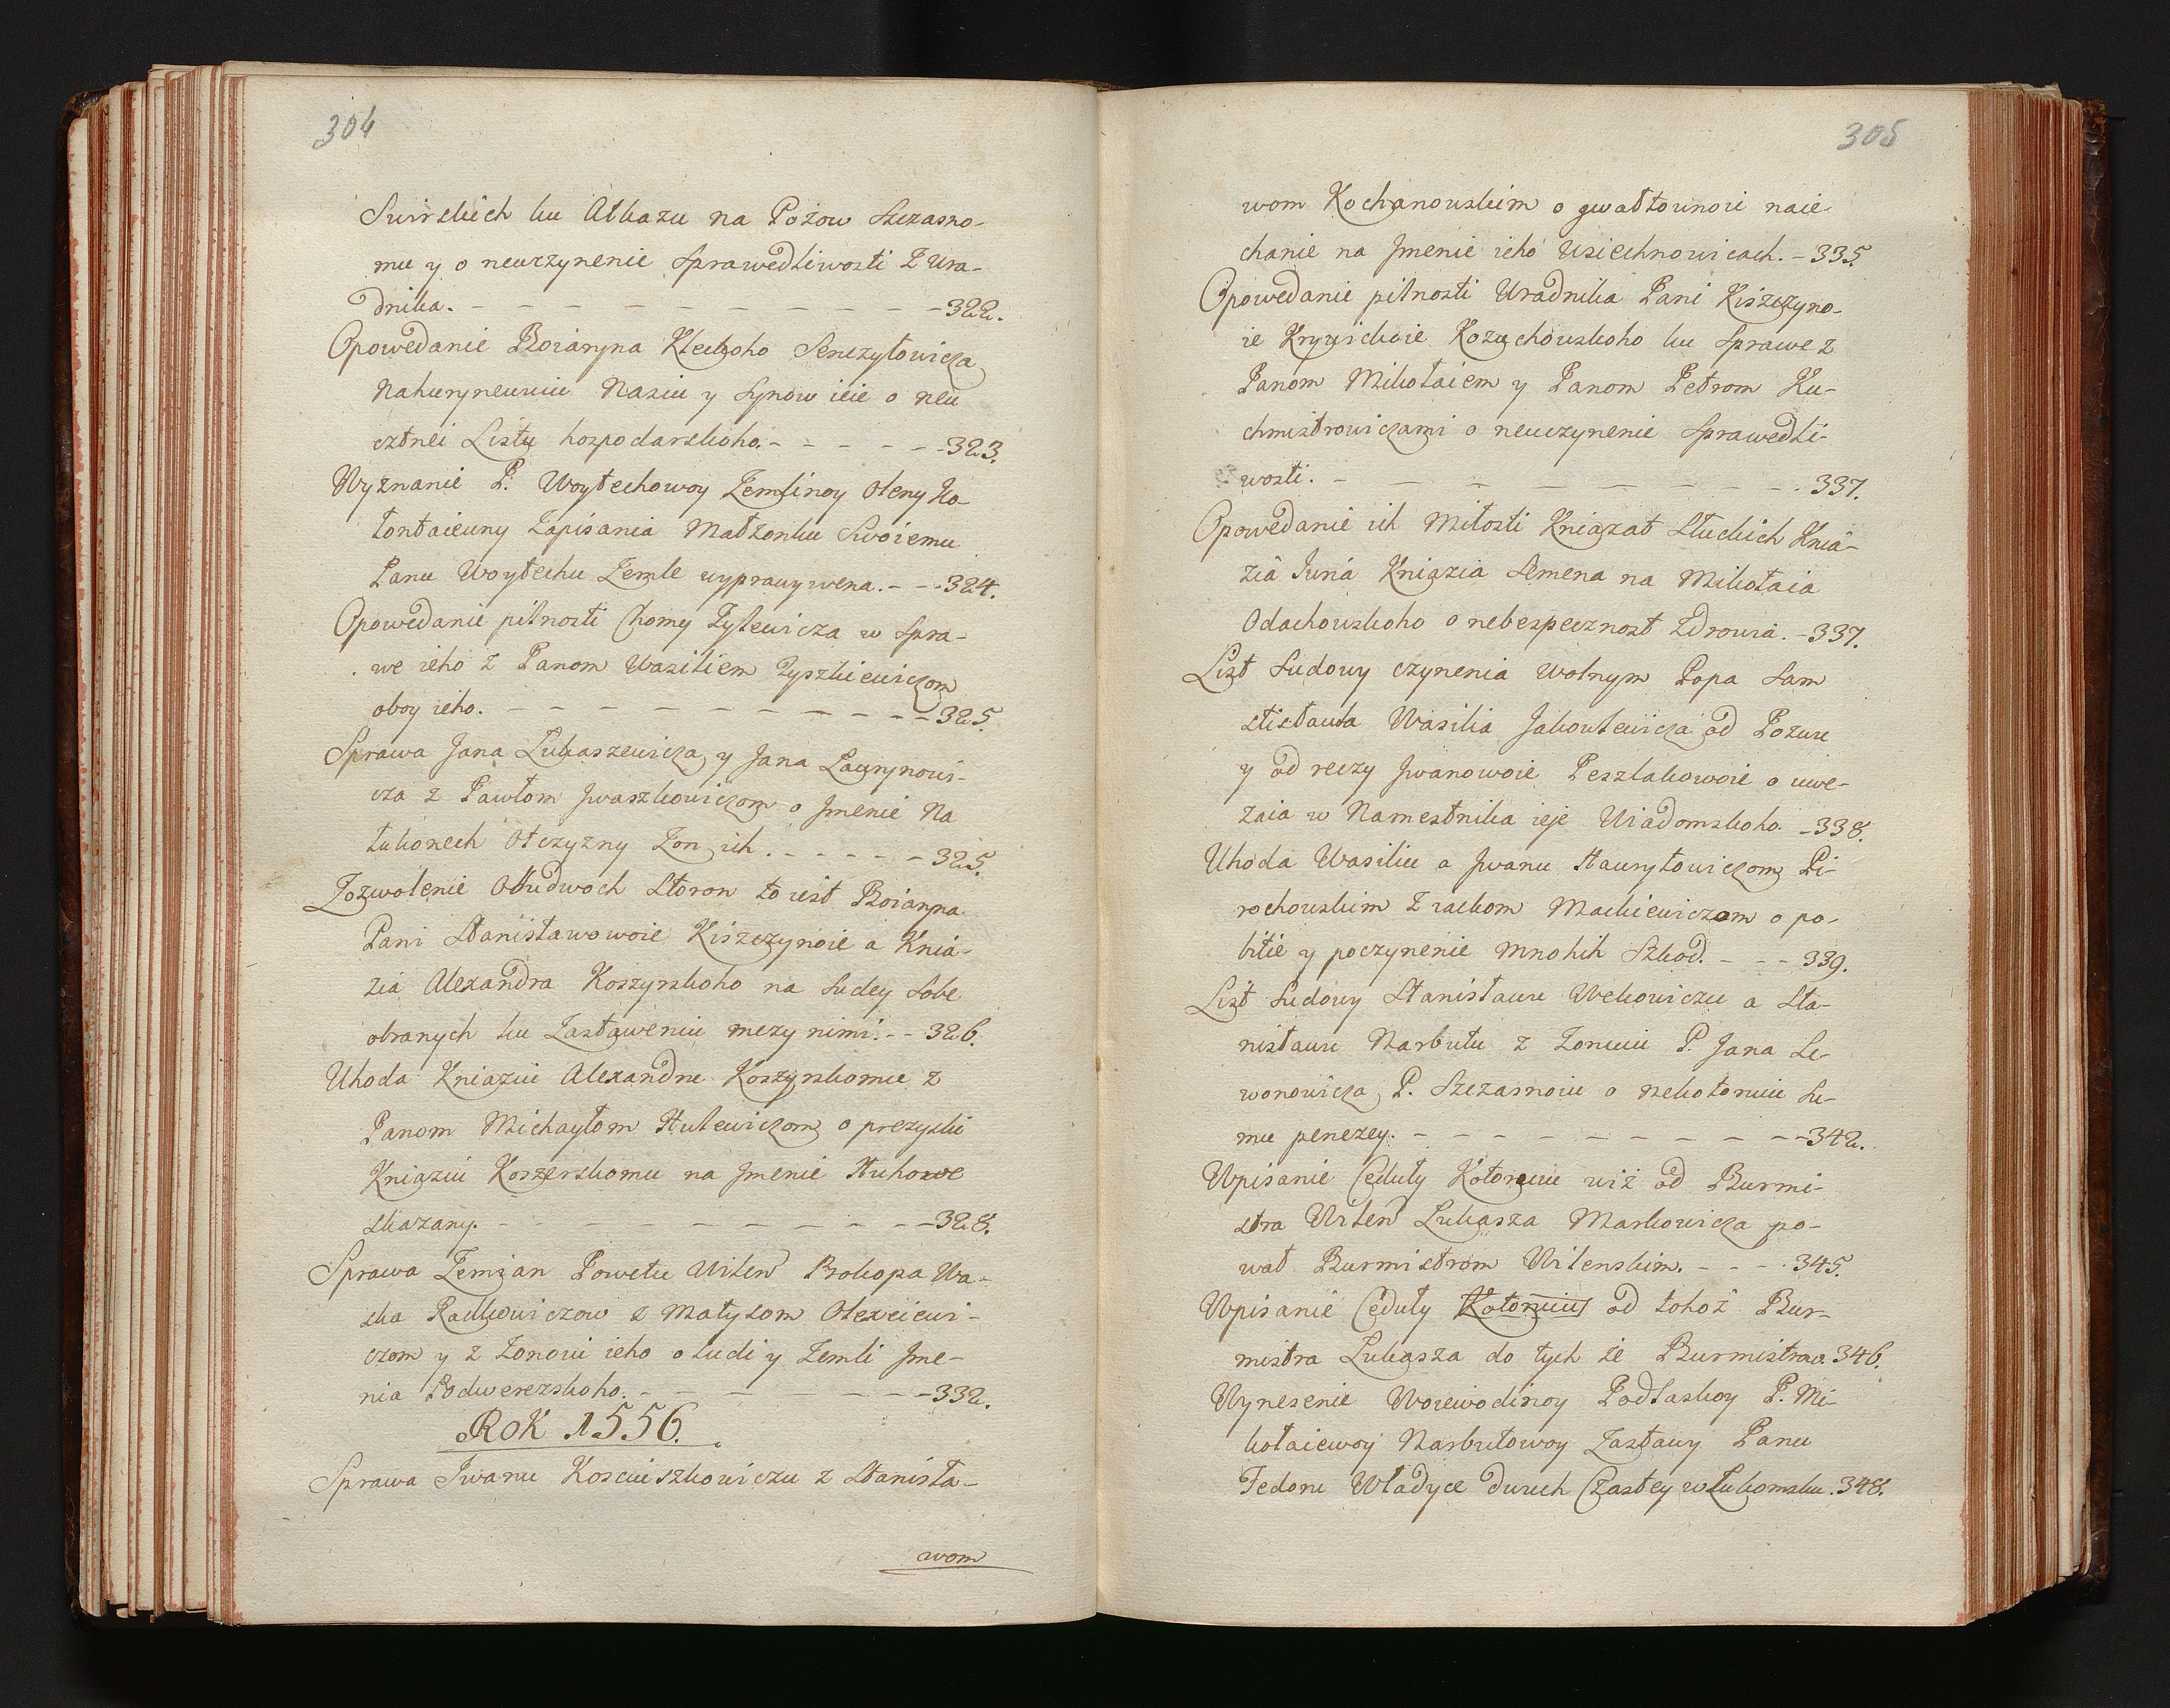 304
Swirskich ku Atkazu na Pozow Szczasno-
mu y o neuczynenie Sprawedliwosti z Ura-
dnika. - - - - - - - - - - -322.
Opowedanie Boiaryna Kleckoho Senczyłowicza
Nasiu y Synow ieie o neu
cztnei Listu hospodarskoho. - - - - - -323.
Wyznanie P. Woytechowoy Zemlinoy Oleny Ko-
łontaiewny Zapisania Małżonku Swoiemu
Panu Woytechu Zemle - - -324.
Opowedanie pilnosti Chomy Zylewicza w Spra-
we ieho z Panom Wasiliem Tyszkiewiczom
oboy ieho. - - - - - - - - - - -325.
Sprawa Jana Lukaszewicza y Jana Lawrynowi-
cza z Pawłom Jwaszkowiczom o Jmenie Na
Łukonech Otczyzny Zon ich. - - - - - -325.
Zozwolenie Obudwoch Storon to iest Boiaryna
Pani Stanisławowoie Kiszczynoie a Knia-
zia Alexandra Koszyrskoho na Sudey Sobe
obranych ku Zastaweniu mezy nimi. - -326.
Uhoda Kniaziu Alexandru Koszyrskomu z
Panom Michayłom Hulewiczom o prezyski
Kniaziu Koszerskomu na Jmenie Huhowe
skazany. - - - - - - - - - - -328.
Sprawa Zemian Powetu Wilen Prokopa Wa-
ska Rackowiczow z Matysom Olexeiewi-
czom y z Zonoiu ieho o Ludi y Zemli Jme-
nia Podwerezskoho. - - - - - - - -332.
Rok 1556.
Sprawa Iwanu Kosciuszkowiczu z Stanisła-
wom
305
wom Kochanowskim o gwałtownoie naie-
chanie na Jmenie ieho Usiechnowicach. -335.
Opowedanie pilnosti Uradnika Pani Kiszczyno-
ie Krywickoie Kozuchowskoho ku Sprawe z
Panom Mikołaiem y Panom Petrom Ku-
chmistrowiczami o neuczynenie Sprawedli-
wosti. - - - - - - - - - 337.
Opowedanie ich Miłosti Kniazat Słuckich Knia-
zia Iuria Kniazia Semena na Mikołaia
Odachowskoho o nebespecznost Zdrowia. -337.
List Sudowy czynenia wolnym Popa Sam
stisława Wasilia Jakowlewicza od Pozwu
y od reczy Jwanowoie Peszlakowoie o uwe-
zaia w Namestnika ieje Wiadomskoho. -338.
Uhoda Wasiliu a Jwanu Hawryłowiczom Pi-
rochowskim z iackom Mackiewiczom o po-
bitie y poczynenie mnohih Szkod. - - - 339.
List Sudowy Stanisławu Wekowiczu a Sta-
nisławu Narbutu z Zonoiu P. Jana Le-
wonowicza P. Szczasnoiu o nekotoruiu Su-
mu penezey. - - - - - - - - - -342.
Upisanie Ceduły Kotoruiu wiz od Burmi-
stra Wilen Lukasza Markowicza po-
wat Burmistrom Wilenskim. - - - -345.
Upisanie Ceduły Kotoruiu od tohoż Bur-
mistra Lukasza do tych że Burmistrow. 346.
Wynesenie Woiewodinoy Podlaskoy P. Mi-
kołaiewoy Narbutowoy Zastawy Panu
Fedoru Władyce dwuch Czastey w Łukomsku. 348.